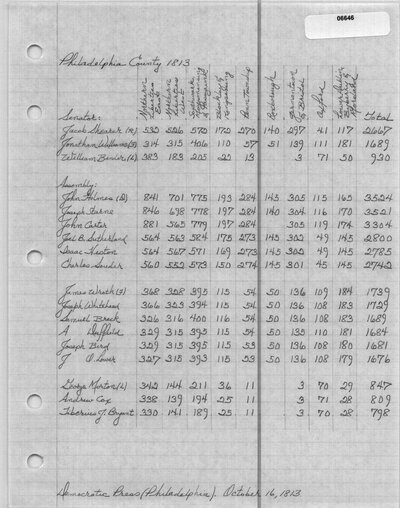 06646
Philadelphia County 1813
Northern Liberties East
Northern Liberties West
Southwark, Moyamensing & Passyunk
Blockley & Kingsessing
Penn Township
Roxborough
Germantown & Bristol
Oxford
Lower Dublin Byberry & Moreland
Total
Senator:
Jacob Shearer 532 526 572 172 270 140 297 41 117 2667
Jonathan Williams (F) 314 315 406 110 57 51 139 111 181 1689
William Binder 383 183 205 25 13 3 71 50 930
Assembly:
John Holmes (D) 841 701 775 193 284 145 305 115 165 3524
Joseph Starne 846 698 778 197 284 140 304 116 170 3521
John Carter 881 565 779 197 284 305 119 174 3304
Joel B. Sutherland 564 563 584 175 273 145 302 49 145 2800
Isaac Heston 564 567 571 169 273 145 302 49 145 2785
Charles Souder 560 552 573 150 274 145 301 45 145 2742
James Wrath (F) 368 328 395 115 54 50 136 109 184 1739
Joseph Whitehead 366 323 394 115 54 50 136 108 183 1729
Samuel Breck 326 316 400 116 54 50 136 108 183 1689
A Duffield 329 315 395 115 54 50 135 110 181 1684
Joseph Bird 329 315 395 115 53 50 136 108 180 1681
J O Lower 327 315 393 115 53 50 136 108 179 1676
George Morton 342 144 211 36 11 3 70 29 847
Andrew Cox 338 139 194 25 11 3 71 28 809
Tiberius J. Bryant 330 141 189 25 11 3 70 28 798
Democratic Press (Philadelphia). October 16, 1813.